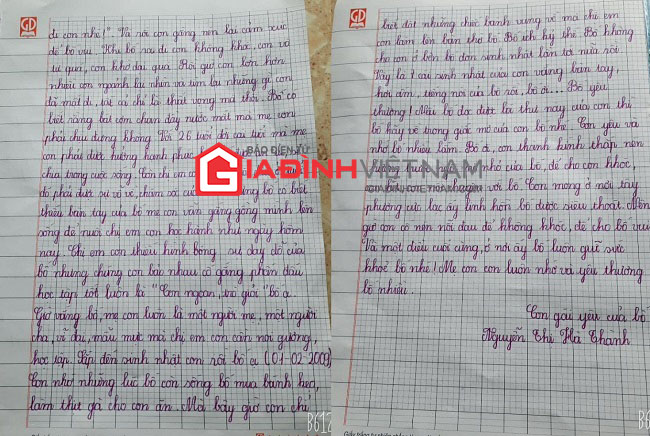 GD
đi con nhé!". Và rồi con gắng nén lại cảm xúc
để bố vui. Khi bố nói đi con không khóc, con vô
tư quá, con khờ dại quá. Rồi giờ con lớn hơn
nhiều con ngoảnh lại nhìn và tìm lại những gì con
đã mất đi, tất cả chỉ là thất vọng mà thôi. Bố có
biết rằng bát cơm chan đầy nước mắt mà mẹ con
phải chịu đựng không. Tới 26 tuổi đời cái tuổi mà mẹ
con phải được hưởng hạnh phúc
chua trong cuộc sống. Còn chị em c
đó phải được sự vỗ về, chăm sóc của bố có biết
thiếu bàn tay của bố mẹ con vẫn gắng gồng mình lên
sống để nuôi chị em con học hành như ngày hôm
nay. Chị em con thiếu hình bóng, sự dạy dỗ của
bố nhưng chúng con bảo nhau cố gắng phấn đấu
học tập tốt luôn là "Con ngoan, trò giỏi" bố ạ.
Giờ vắng bố, mẹ con luôn là một người mẹ, một người
cha, vĩ đại, mẫu mực mà chị em con cần noi gương,
học tập. Sắp đến sinh nhật con rồi bố ạ (01-02-2009)
Con nhớ những lúc bố còn sống bố mua bánh kẹo,
làm thịt gà cho con ăn. Mà bây giờ con chỉ
B612
GD
biết dát những chiếc bánh vụng về mà chị em
con làm lên bàn thờ bố. Bố ích kỷ thế. Bố không
cho con ở bên bố đón sinh nhật lần tới nữa rồi.
Đây là 1 cái sinh nhật của con vắng bàn tay,
hơi ấm, tiếng nói của bố rồi, bố ơi... Bố yêu
thương! Nếu bố đọc được lá thư này của con thì
bố hãy về trong giấc mơ của con bố nhé. Con yêu và
nhớ bố nhiều lắm. Bố ơi, con thắp hình thắp nén
nhỏ của bố, để cho con khóc,
với bố. Con mong ở nơi tây
phương cực lạc ấy linh hồn bố được siêu thoát. Nên
giờ con có nén nỗi đau để không khóc, để cho bố vui
Và một điều cuối cùng, ở nơi ấy bố luôn giữ sức
khoẻ bố nhé! Mẹ con con luôn nhớ và yêu thương
bố nhiều.
Con gái yêu của bố
Nguyễn Thị Hà Thành
B612
BÁO ĐIỆN TỬ
GIAĐÌNHVIỆTNAM